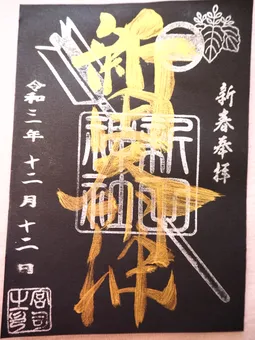 新春奉拝
新田大神
新田神社
令和三年十二月十二日
宮司之印